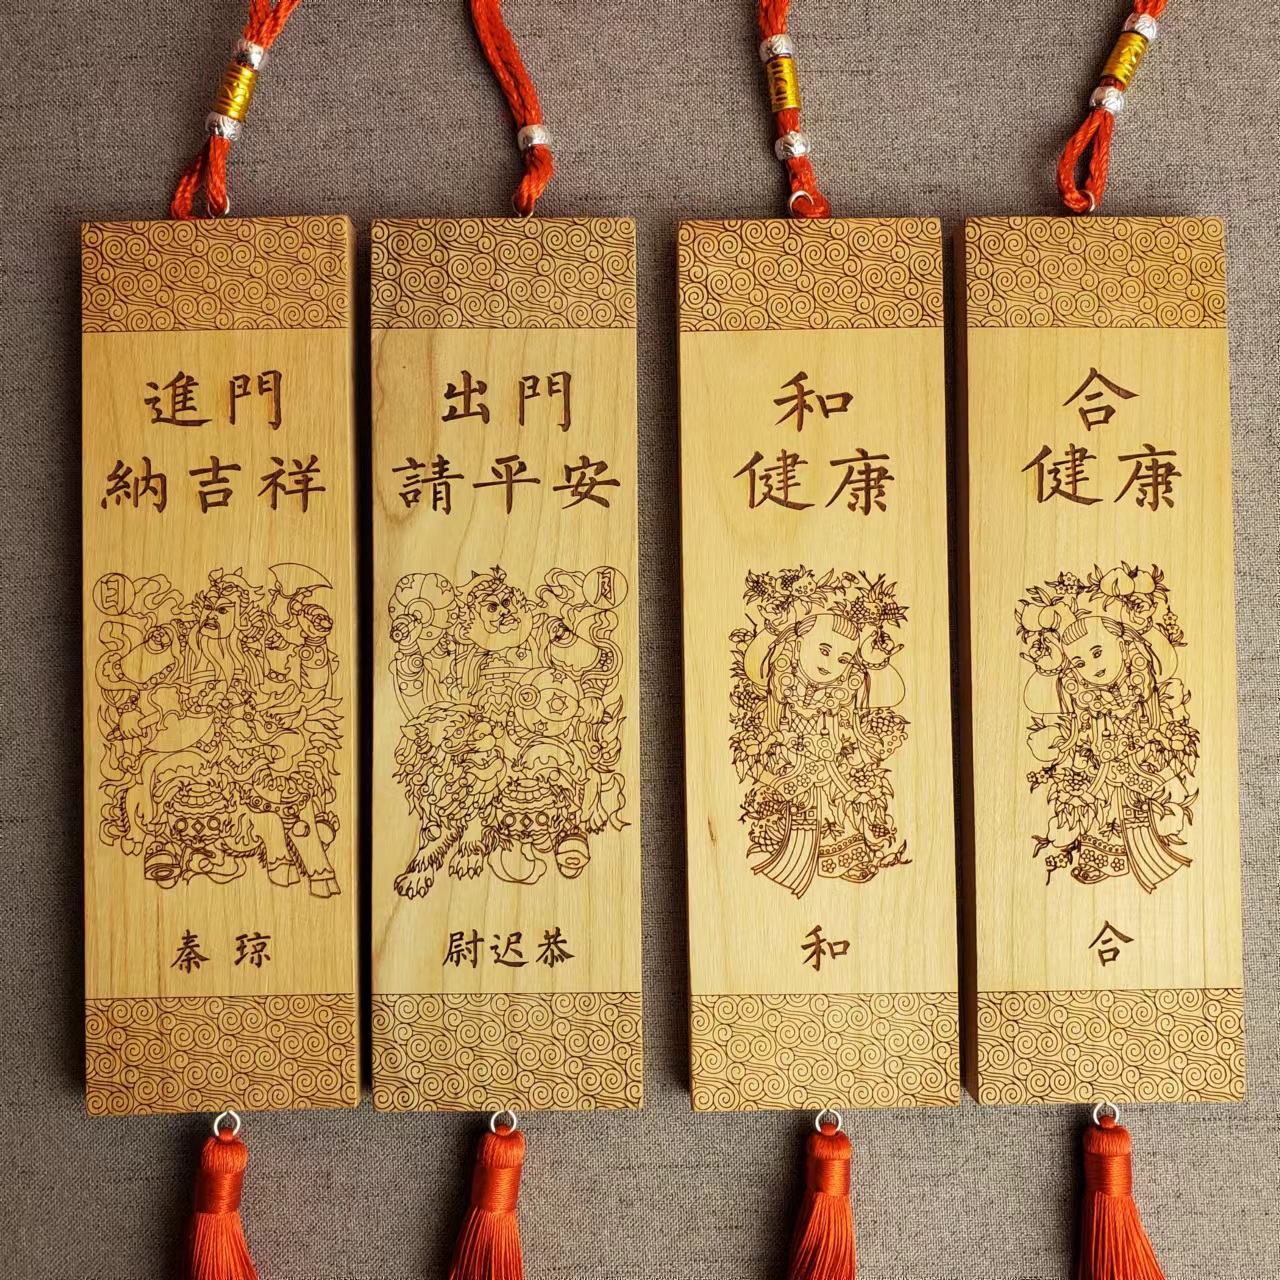 進門
納吉祥
日
秦琼
出門
請平安
月
尉迟恭
和
健康
和
合
健康
合